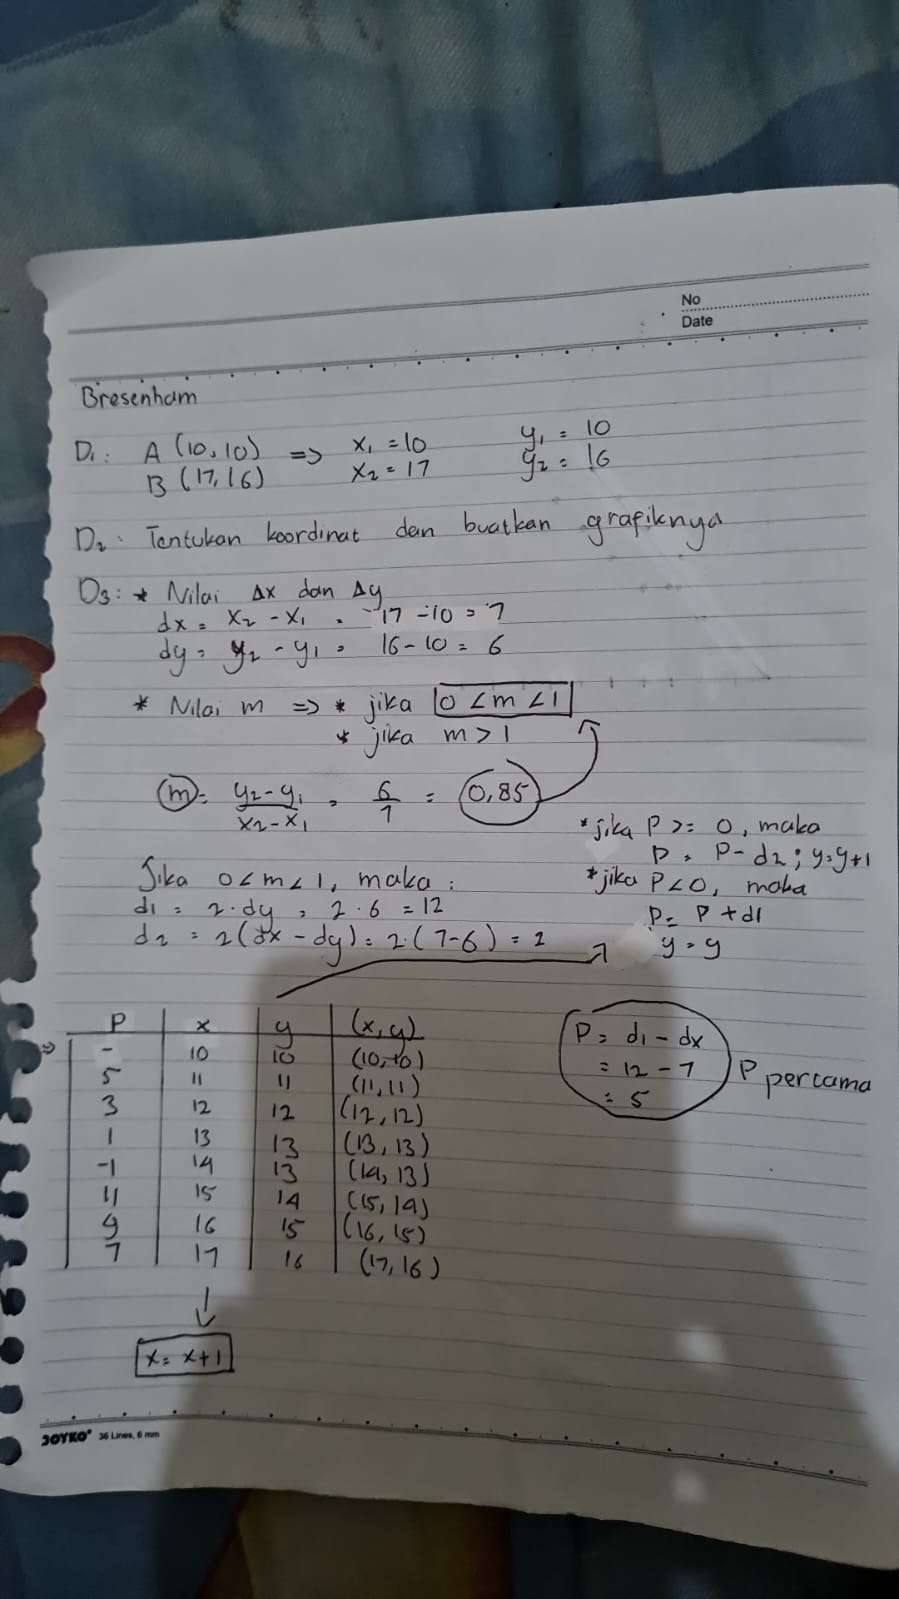 No
Date
Bresenham
D1: A (10,10) => x1 = 10 y1 = 10
B (17,16) x2 = 17 y2 = 16
D2: Tentukan koordinat dan buatkan grafiknya
D3: * Nilai Δx dan Δy
dx = x2 - x1 = 17 - 10 = 7
dy = y2 - y1 = 16 - 10 = 6
* Nilai m => * jika 0 < m < 1
* jika m > 1
m = y2 - y1 / x2 - x1 = 6/7 = 0,85
* jika P >= 0, maka
P = P - d2 ; y = y+1
* jika P < 0, maka
P = P + d1
y = y
Jika 0 < m < 1, maka :
d1 = 2 . dy = 2 . 6 = 12
d2 = 2 (dx - dy) = 2 . (7-6) = 2
P x y (x,y)
- 10 10 (10,10)
5 11 11 (11,11)
3 12 12 (12,12)
1 13 13 (13,13)
-1 14 13 (14,13)
11 15 14 (15,14)
9 16 15 (16,15)
7 17 16 (17,16)
P = d1 - dx
= 12 - 7
= 5
P pertama
x = x+1
JOYKO 36 Lines, 6 mm